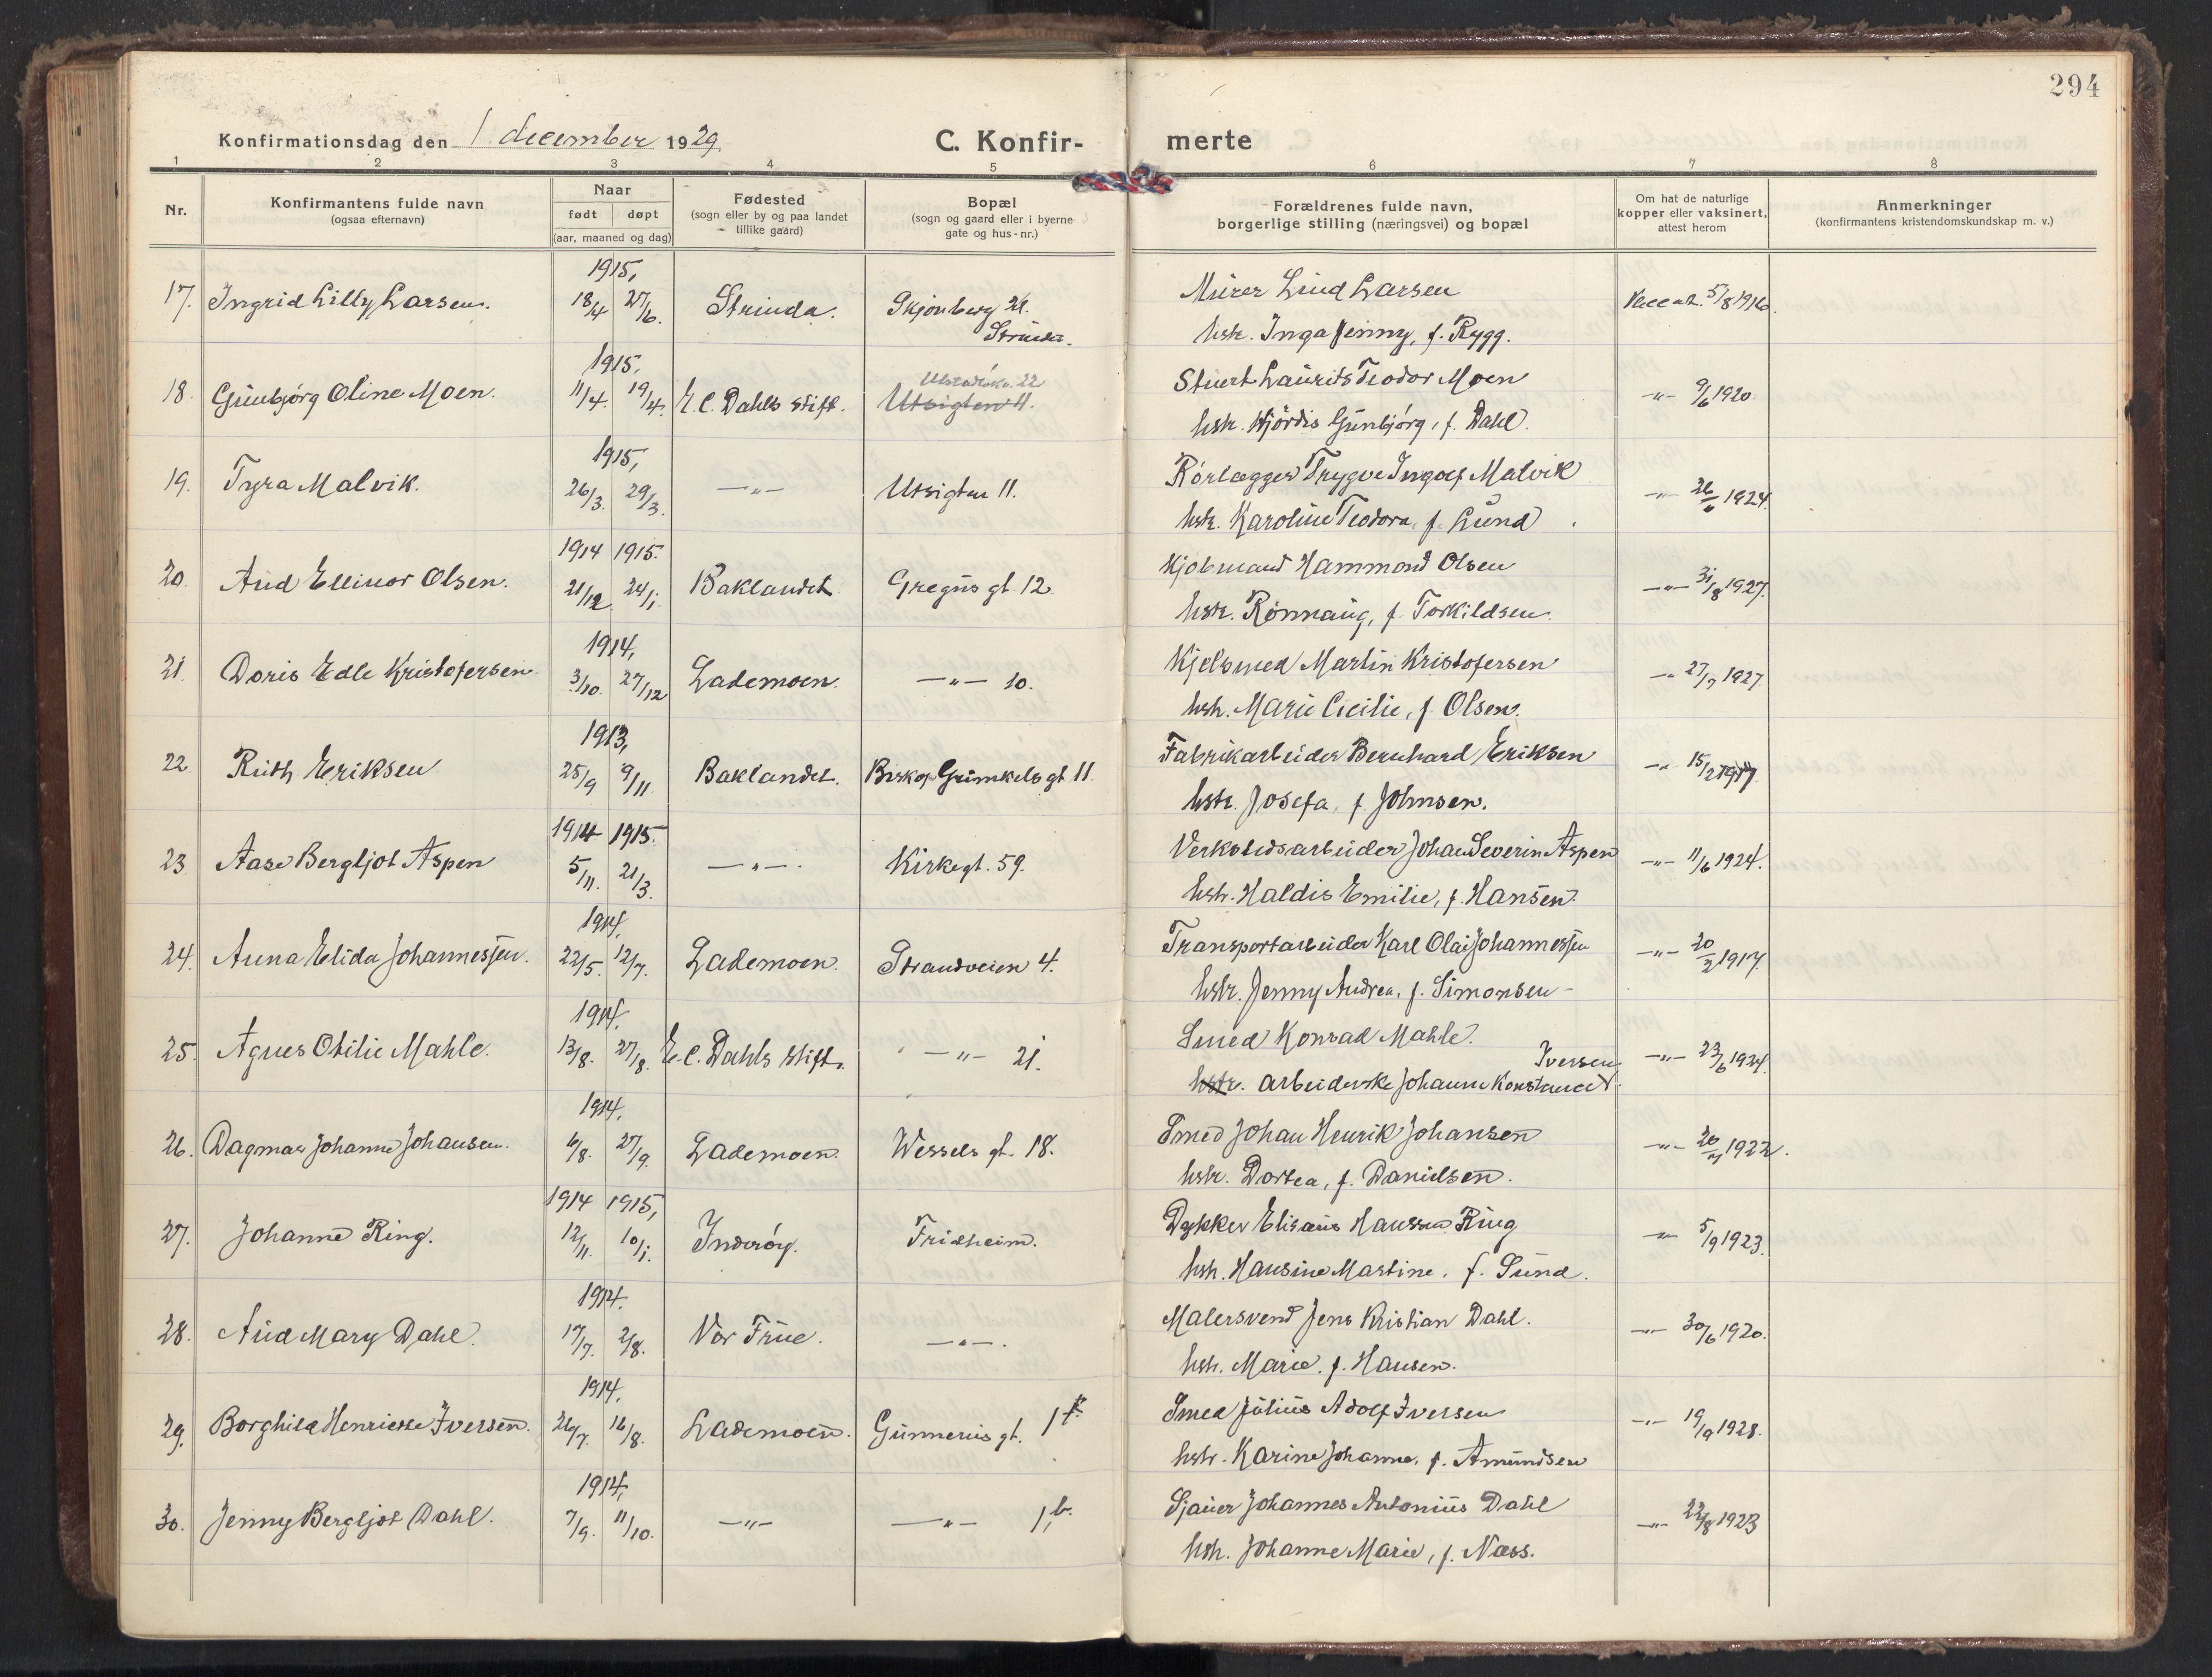 294
Konfirmationsdag den 1. december 1929.
C. Konfir-
merte
1 2 3 4 5 6 7 8
Nr.
Konfirmantens fulde navn
(ogsaa efternavn)
Naar
født døpt
(aar, maaned og dag)
Fødested
(sogn eller by og paa landet
tillike gaard)
Bopæl
(sogn og gaard eller i byerne
gate og hus-nr.)
Forældrenes fulde navn,
borgerlige stilling (næringsvei) og bopæl
Om hat de naturlige
kopper eller vaksinert,
attest herom
Anmerkninger
(konfirmantens kristendomskundskap m. v.)
1915,
17. Ingrid Lilly Larsen. 18/4 27/6. Strinda. Skjonberg
Strinda.
Murer Lind Larsen
hstr. Inga Jenny, f. Rygg.
5/8 1916.
1915,
18. Gunbjørg Oline Moen. 11/4. 19/4. E. C. Dahls stift. Utsigten 11.
22
Stuert Laurits Teodor Moen
hstr. Hjørdis Gunbjørg, f. Dahl.
-"- 9/6 1920.
1915,
19. Tyra Malvik. 26/3. 29/3. -"- Utsigten 11.
Rørlægger Trygve Ingolf Malvik
hstr. Karoline Teodora, f. Lund.
-"- 26/6 1924.
1914 1915.
20. Aud Ellinor Olsen. 21/12. 24/1. Baklandet Gregus gt. 12.
Kjøbmand Hammond Olsen
hstr. Rønnaug, f. Torkildsen.
-"- 31/8 1927.
1914,
21. Doris Edle Kristofersen. 3/10. 27/12 Lademoen. -"- 10.
Kjelsmed Martin Kristofersen
hstr. Marie Cicilie, f. Olsen.
-"- 27/7 1927.
1913,
22. Ruth Eriksen 25/9 9/11. Baklandet. Biskop Grimkels gt. 11.
Fabrikarbeider Bernhard Eriksen
hstr. Josefa, f. Johnsen.
-"- 15/2 1917.
1914 1915.
23. Aase Bergljot Aspen 5/11. 21/3. -"-. Kirkegt. 59.
Verkstedsarbeider Johan Severin Aspen
hstr. Haldis Emilie, f. Hansen.
-"- 11/6 1924.
1914,
24. Anna Elida Johannessen. 22/5. 12/7. Lademoen. Strandveien 4.
Transportarbeider Karl Olai Johannessen
hstr. Jenny Andrea, f. Simonsen -
-"- 20/2 1917.
1914,
25. Agnes Otilie Mahle. 13/8. 27/8. E. C. Dahls stift. -"- 21.
Smed Konrad Mahle.
Iversen
hstr. arbeiderske Johanne Konstance
-"- 23/6 1924.
1914,
26. Dagmar Johanne Johansen. 6/8. 27/9. Lademoen. Wessels gt. 18.
Smed Johan Henrik Johansen
hstr. Dortea, f. Danielsen.
-"- 1922.
1914 1915,
27. Johanne Ring. 12/11. 10/1. Inderøy. Fridheim.
Dykker Elisæus Hansen Ring
hstr. Hansine Martine, f. Sund.
-"- 5/9 1923.
1914.
28. Aud Mary Dahl. 17/7. 2/8. Vor Frue. -"-.
Malersvend Jens Kristian Dahl.
hstr. Marie, f. Hansen.
-"- 30/6 1920.
1914,
29. Borghild Henriette Iversen. 26/7. 16/8. Lademoen. Gunnerus gt. 1
Smed Julius Adolf Iversen
hstr. Karine Johanne, f. Amundsen
-"- 19/9 1928.
1914,
30. Jenny Bergljot Dahl. 7/9. 11/10. -"- -"- 1, b.
Sjauer Johannes Antonius Dahl
hstr. Johanne Marie, f. Næss.
-"- 22/8 1923